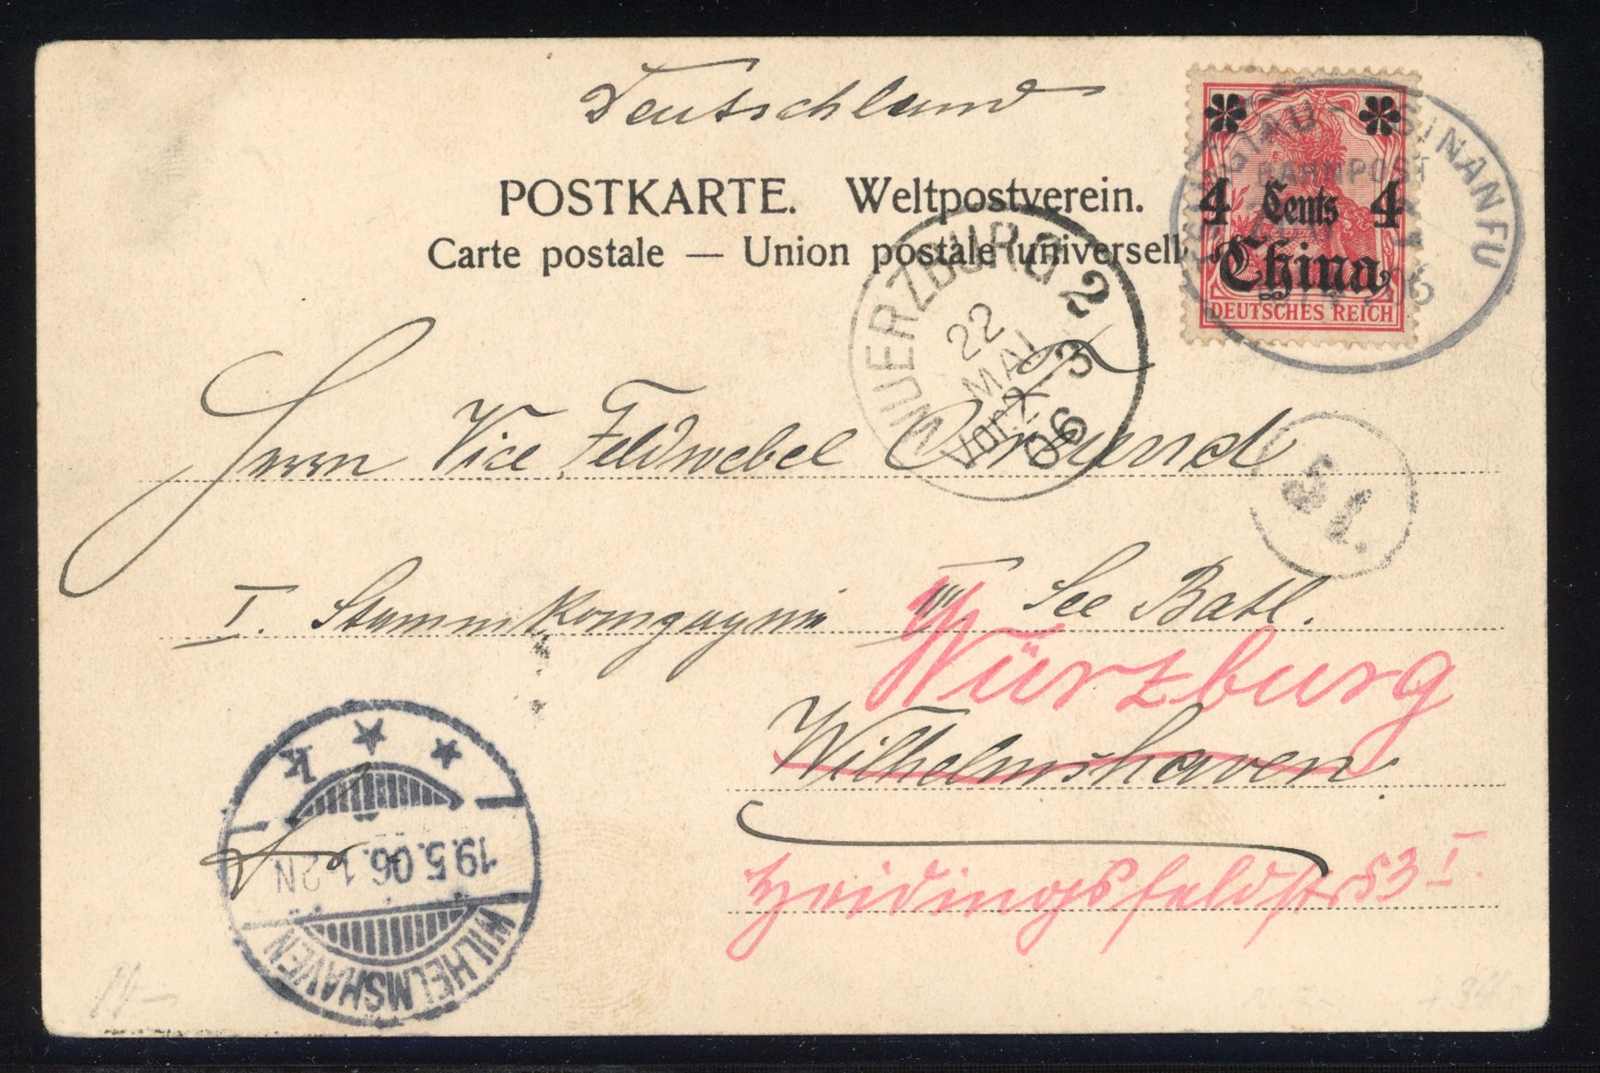 Deutschland
POSTKARTE. Weltpostverein.
Carte postale — Union postale universell
4 Cents 4
China
DEUTSCHES REICH
TSINGTAU - TSINANFU
BAHNPOST
WUERZBURG 2
22
MAI
Vor. 2-3
06
Herrn Vice Feldwebel
51.
I. Stammkompagnie III See Batl.
Würzburg
Wilhelmshaven
Heidingsfeldstr 53 I.
WILHELMSHAVEN
19.5.06. 1-2N
* * k